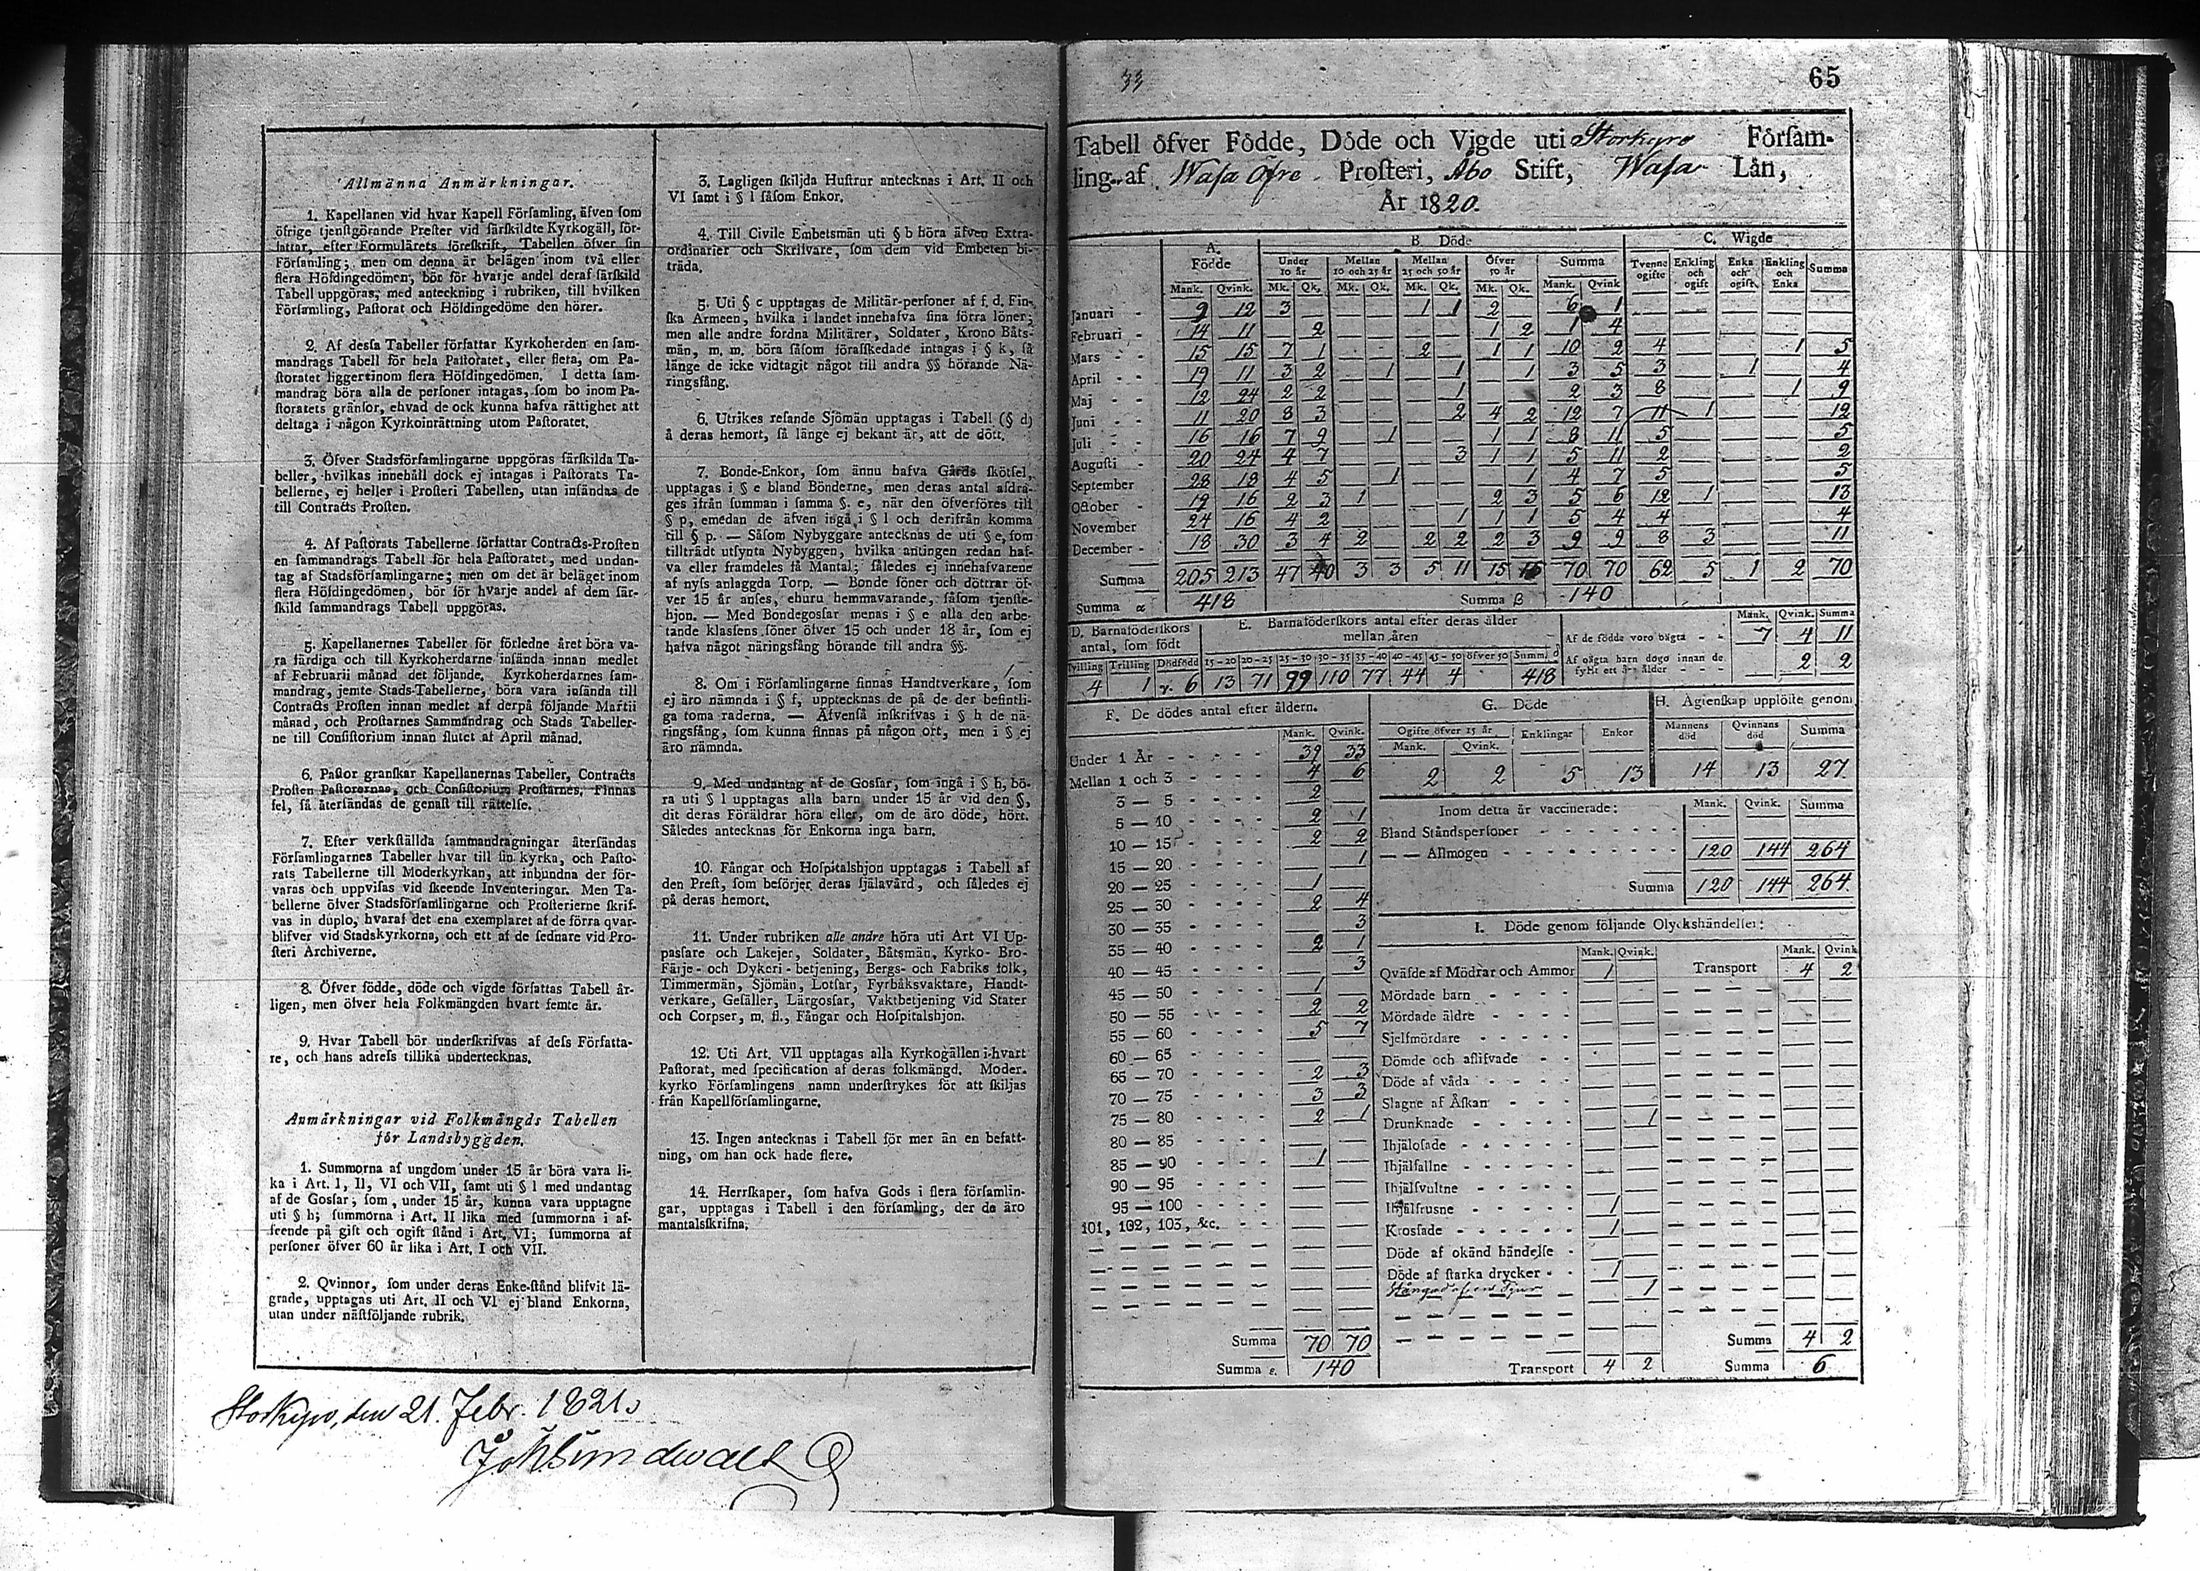 Allmänna Anmärkningar.
1. Kapellanen vid hvar Kapell Församling, äfven som
öfrige tjenstgörande Prester vid särskildte Kyrkogäll, för-
fattar, efter Formulärets föreskrift, Tabellen öfver sin
Församling; men om denna är belägen inom två eller
flera Höfdingedömen, bör för hvarje andel deraf särskild
Tabell uppgöras, med anteckning i rubriken, till hvilken
Församling, Pastorat och Höfdingedöme den hörer.
2. Af dessa Tabeller författar Kyrkoherden en sam-
mandrags Tabell för hela Pastoratet, eller flera, om Pa-
storatet ligger inom flera Höfdingedömen. I detta sam-
mandrag böra alla de personer intagas, som bo inom Pa-
storatets gränsor, ehvad de ock kunna hafva rättighet att
deltaga i någon Kyrkoinrättning utom Pastoratet.
3. Öfver Stadsförsamlingarne uppgöras särskilda Ta-
beller, hvilkas innehåll dock ej intages i Pastorats Ta-
bellerne, ej heller i Prosteri Tabellen, utan insändas de
till Contracts Prosten.
4. Af Pastorats Tabellerne författar Contracts-Prosten
en sammandrags Tabell för hela Pastoratet, med undan-
tag af Stadsförsamlingarne; men om det är beläget inom
flera Höfdingedömen, bör för hvarje andel af dem sär-
skild sammandrags Tabell uppgöras.
5. Kapellanernes Tabeller för förledne året böra va-
ra färdiga och till Kyrkoherdarne insända innan medlet
af Februarii månad det följande. Kyrkoherdarnes sam-
mandrag, jemte Stads-Tabellerne, böra vara insända till
Contracts Prosten innan medlet af derpå följande Martii
månad, och Prostarnes Sammandrag och Stads Tabeller-
ne till Consistorium innan slutet af April månad.
6. Pastor granskar Kapellanernas Tabeller, Contracts
Prosten Pastorernas, och Consistorium Prostarnes. Finnas
fel, så återsändas de genast till rättelse.
7. Efter verkställda sammandragningar återsändas
Församlingarnes Tabeller hvar till sin kyrka, och Pasto-
rats Tabellerne till Moderkyrkan, att inbundna der för-
varas och uppvisas vid skeende Inventeringar. Men Ta-
bellerne öfver Stadsförsamlingarne och Prosterierne skrif-
vas in duplo, hvaraf det ena exemplaret af de förra qvar-
blifver vid Stadskyrkorna, och ett af de sednare vid Pro-
steri Archiverne.
8. Öfver födde, döde och vigde författas Tabell år-
ligen, men öfver hela Folkmängden hvart femte år.
9. Hvar Tabell bör underskrifvas af dess Författa-
re, och hans adress tillika undertecknas.
Anmärkningar vid Folkmängds Tabellen
för Landsbyggden.
1. Summorna af ungdom under 15 år böra vara li-
ka i Art. I, II, VI och VII, samt uti § l med undantag
af de Gossar, som, under 15 år, kunna vara upptagne
uti § h; summorna i Art. II lika med summorna i af-
seende på gift och ogift stånd i Art. VI; summorna af
personer öfver 60 år lika i Art. I och VII.
2. Qvinnor, som under deras Enke-stånd blifvit lä-
grade, upptagas uti Art. II och VI ej bland Enkorna,
utan under nästföljande rubrik.
3. Lagligen skiljda Hustrur antecknas i Art. II och
VI samt i § l såsom Enkor.
4. Till Civile Embetsmän uti § b höra äfven Extra-
ordinarier och Skrifvare, som dem vid Embeten bi-
träda.
5. Uti § c upptagas de Militär-personer af f. d. Fin-
ska Armeen, hvilka i landet innehafva sina förra löner;
men alle andre fordna Militärer, Soldater, Krono Båts-
män, m. m. böra såsom förafskedade intagas i § k, så
länge de icke vidtagit något till andra §§ hörande Nä-
ringsfång.
6. Utrikes resande Sjömän upptagas i Tabell (§ d)
å deras hemort, så länge ej bekant är, att de dött.
7. Bonde-Enkor, som ännu hafva Gårds skötsel,
upptagas i § e bland Bönderne, men deras antal afdra-
ges ifrån summan i samma §. e, när den öfverföres till
§ p, emedan de äfven ingå i § l och derifrån komma
till § p. — Såsom Nybyggare antecknas de uti § e, som
tillträdt utsynta Nybyggen, hvilka antingen redan haf-
va eller framdeles få Mantal; således ej innehafvarene
af nyss anlaggda Torp. — Bonde söner och döttrar öf-
ver 15 år anses, ehuru hemmavarande, såsom tjenste-
hjon. — Med Bondegossar menas i § e alla den arbe-
tande klassens söner öfver 15 och under 18 år, som ej
hafva något näringsfång hörande till andra §§.
8. Om i Församlingarne finnas Handtverkare, som
ej äro nämnda i § f, upptecknas de på de der befintli-
ga toma raderna. — Äfvenså inskrifvas i § h de nä-
ringsfång, som kunna finnas på någon ort, men i § ej
äro nämnda.
9. Med undantag af de Gossar, som ingå i § h, bö-
ra uti § l upptagas alla barn under 15 år vid den §,
dit deras Föräldrar höra eller, om de äro döde, hört.
Således antecknas för Enkorna inga barn.
10. Fångar och Hospitalshjon upptagas i Tabell af
den Prest, som besörjer deras själavård, och således ej
på deras hemort.
11. Under rubriken alle andre höra uti Art VI Up-
passare och Lakejer, Soldater, Båtsmän, Kyrko- Bro-
Färje- och Dykeri-betjening, Bergs- och Fabriks folk,
Timmermän, Sjömän, Lotsar, Fyrbåksvaktare, Handt-
verkare, Gesäller, Lärgossar, Vaktbetjening vid Stater
och Corpser, m. fl., Fångar och Hospitalshjon.
12. Uti Art. VII upptagas alla Kyrkogällen i hvart
Pastorat, med specification af deras folkmängd. Moder-
kyrko Församlingens namn understrykes för att skiljas
från Kapellförsamlingarne.
13. Ingen antecknas i Tabell för mer än en befatt-
ning, om han ock hade flere.
14. Herrskaper, som hafva Gods i flera församlin-
gar, upptagas i Tabell i den församling, der de äro
mantalsskrifna.
Storkyro, den 21. Febr. 1821.
33
65
Tabell öfver Födde, Döde och Vigde uti Storkyro Försam-
ling af Wasa Öfre Prosteri, Åbo Stift, Wasa Län,
År 1820.
A. Födde B. Döde C. Wigde
Under 10 år Mellan 10 och 25 år Mellan 25 och 50 år Öfver 50 år Summa Tvenne ogifte Enkling och ogift Enka och ogift. Enkling och Enka Summa
Mank. Qvink. Mk. Qk. Mk. Qk. Mk. Qk. Mk. Qk. Mank. Qvink
Januari 9 12 3 — — — 1 1 2 — 6 1 — — — — —
Februari 14 11 — 2 — — — — 1 2 1 4 — — — — —
Mars 15 15 7 1 — — 2 — 1 1 10 2 4 — — 1 5
April 19 11 3 2 — 1 — 1 — 1 3 5 3 — 1 — 4
Maj 12 24 2 2 — — — 1 — — 2 3 8 — — 1 9
Juni 11 20 8 3 — — — 2 4 2 12 7 11 1 — — 12
Juli 16 16 7 9 — 1 — — 1 1 8 11 5 — — — 5
Augusti 20 24 4 7 — — — 3 1 1 5 11 2 — — — 2
September 28 18 4 5 — 1 — — — 1 4 7 5 — — — 5
October 19 16 2 3 1 — — — 2 3 5 6 12 1 — — 13
November 24 16 4 2 — — — 1 1 1 5 4 4 — — — 4
December 18 30 3 4 2 — 2 2 2 3 9 9 8 3 — — 11
Summa 205 213 47 40 3 3 5 11 15 16 70 70 62 5 1 2 70
Summa α 418 Summa β 140
D. Barnaföderskors antal, som födt
Tvilling Trilling Dödfödd
4 1 6
E. Barnaföderskors antal efter deras ålder mellan åren
15-20 20-25 25-30 30-35 35-40 40-45 45-50 öfver 50 Summ. δ
13 71 99 110 77 44 4 418
Mank. Qvink. Summa
Af de födde voro oägta 7 4 11
Af oägta barn dogo innan de fyllt ett års ålder 2 2
F. De dödes antal efter åldern.
Mank. Qvink.
Under 1 År 39 33
Mellan 1 och 3 4 6
3 — 5 2 —
5 — 10 2 1
10 — 15 2 2
15 — 20 — 1
20 — 25 1 —
25 — 30 2 4
30 — 35 — 3
35 — 40 2 1
40 — 45 — 3
45 — 50 1 —
50 — 55 2 2
55 — 60 5 7
60 — 65
65 — 70 2 3
70 — 75 3 3
75 — 80 2 1
80 — 85
85 — 90 1 —
90 — 95
95 — 100
101, 102, 103, &c.
Summa 70 70
Summa ε. 140
G. Döde
Ogifte öfver 15 år Enklingar Enkor
Mank. Qvink.
2 2 5 13
H. Ägtenskap upplöste genom
Mannens död Qvinnans död Summa
14 13 27
Inom detta år vaccinerade: Mank. Qvink. Summa
Bland Ståndspersoner
— — Allmogen 120 144 264
Summa 120 144 264
I. Döde genom följande Olyckshändelser:
Mank. Qvink. Mank. Qvink
Qväfde af Mödrar och Ammor 1 — Transport 4 2
Mördade barn
Mördade äldre
Sjelfmördare
Dömde och aflifvade
Döde af våda
Slagne af Åskan
Drunknade — 1
Ihjälosade
Ihjälfallne
Ihjälsvultne
Ihjälfrusne 1 —
Krossade 1 —
Döde af okänd händelse
Döde af starka drycker 1 —
Stångad af en Tjur — 1
Summa 4 2
Transport 4 2 Summa 6